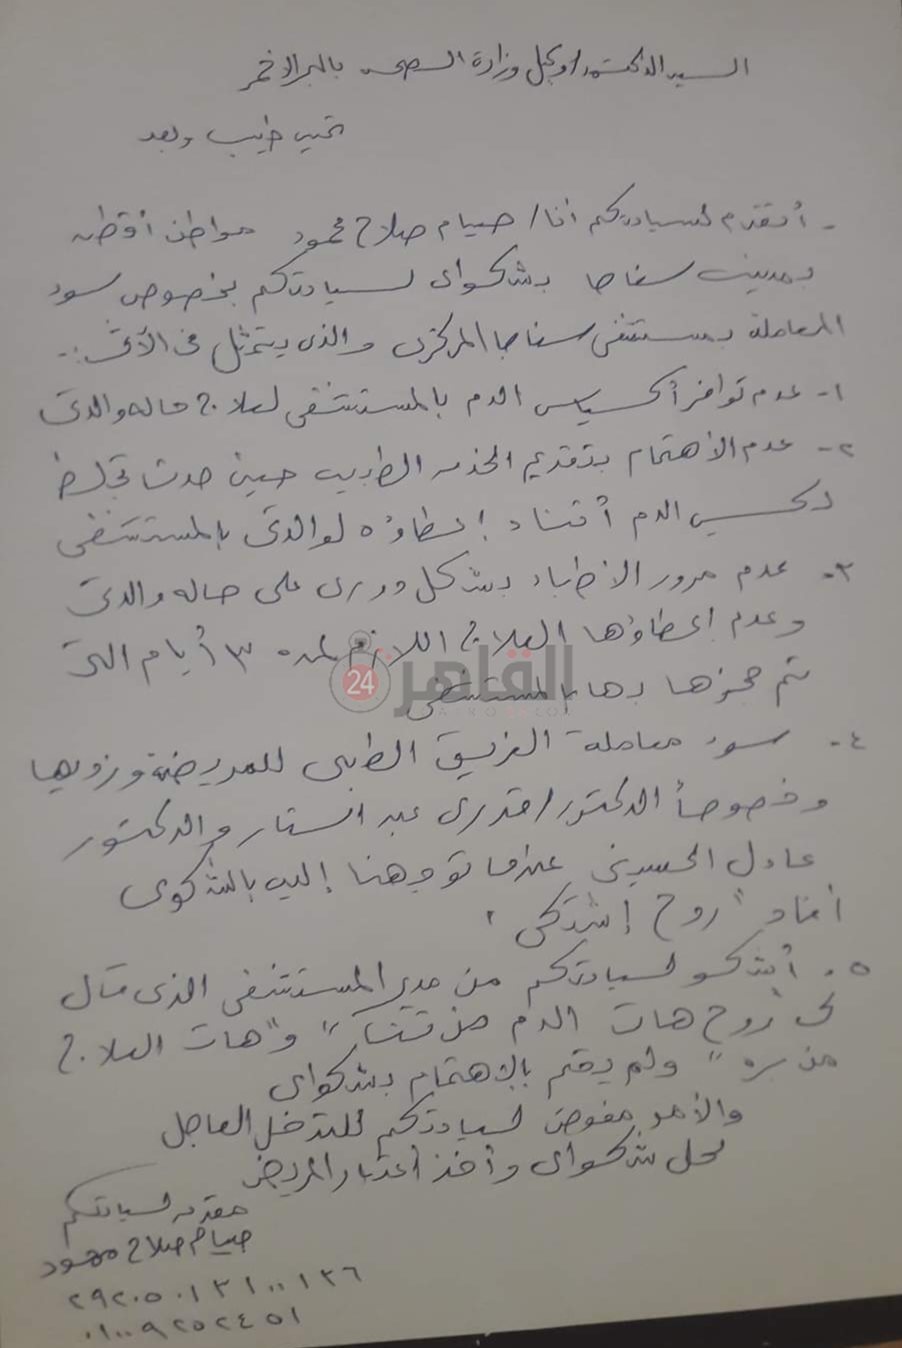 السيد الدكتور/ وكيل وزارة الصحه بالبحر الاحمر
تحيه طيبه وبعد
- أتقدم لسيادتكم أنا/ صيام صلاح محمود مواطن أقطن
بمدينه سفاجا بشكواى لسيادتكم بخصوص سوء
المعاملة بمستشفى سفاجا المركزى والذى يتمثل فى الآتى :-
١- عدم توافر أكسياس الدم بالمستشفى لعلاج حاله والدتى
٢- عدم الأهتمام بتقديم الخدمه الطبيه حين حدث تجلط
لكيس الدم أثناء إعطاؤه لوالدتى بالمستشفى
٣- عدم مرور الاطباء بشكل دورى على حاله والدتى
وعدم إعطاؤها العلاج اللازم لمده ٣ أيام التى
تم حجزها بها بالمستشفى
القاهرة 24
CAIRO24.COM
٤- سوء معاملة الفريق الطبى للمريضة وزويها
وخصوصاً الدكتور/ قدرى عبد الستار والدكتور
عادل الحسينى عندما توجهنا إليه بالشكوى
أفاد "روح إشتكى"
٥- أشكو لسيادتكم من مدير المستشفى الذى قال
لى "روح هات الدم من قنا" و"هات العلاج
من بره" ولم يهتم بالإهتمام بشكواى
والأمر مفوض لسيادتكم للتدخل العاجل
لحل شكواى وأخذ أعتبار المريض
مقدمه لسيادتكم
صيام صلاح محمود
٢٩٢٠٥٠١٣١٠٠١٣٦
٠١٠٠٩٢٥٢٤٥١